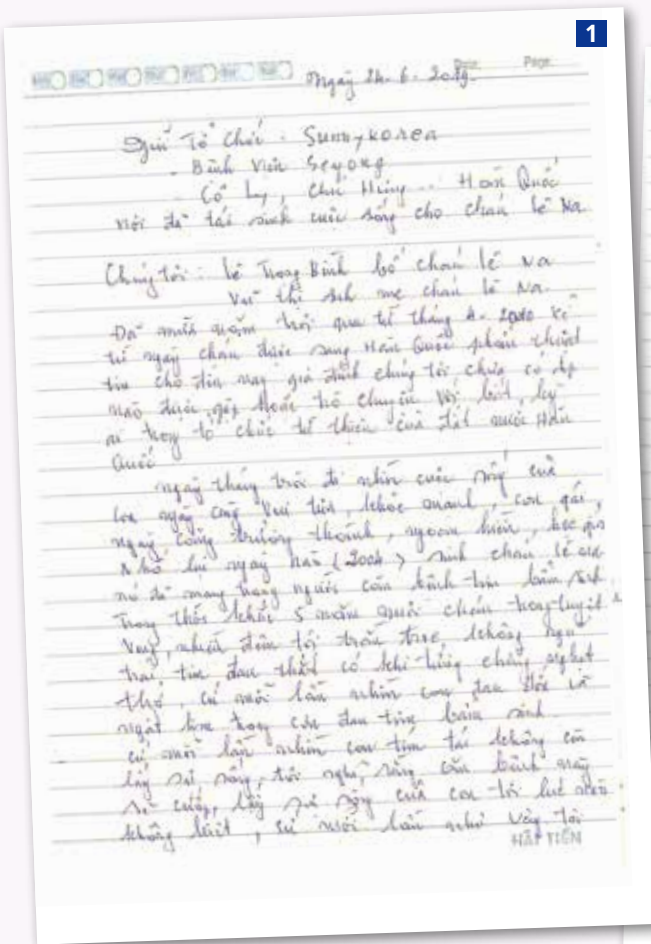 1
Date. Page.
Ngày 24. 6. 2019.
Gửi Tổ Chức. Sunnykorea
- Bệnh Viện Seyong
- Cô Ly, Chú Hùng... Hàn Quốc
Nơi đã tái sinh cuộc sống cho cháu Lê Na
Chúng tôi: Lê Trọng Bình bố cháu Lê Na
Vũ thị mẹ cháu Lê Na.
Đã mười năm trôi qua từ tháng kể
từ ngày cháu được sang Hàn Quốc phẫu thuật
tim cho đến nay gia đình chúng tôi chưa có dịp
nào được gặp hoặc trò chuyện với bất kỳ
ai trong tổ chức từ thiện của đất nước Hàn
Quốc
ngày tháng trôi đi nhìn cuộc sống của
con ngày càng vui tươi, khỏe mạnh, con gái
ngày càng trưởng thành, ngoan hiền, học giỏi
Nhớ lại ngày nào (2004) sinh cháu Lê Na
nó đã mang trong người căn bệnh tim bẩm sinh
Trong thời khắc 5 năm nuôi cháu trong tuyệt
vọng, nhiều đêm tôi trằn trọc không ngủ
trái tim đau thắt có khi từng chừng nghẹt
thở, cứ mỗi lần nhìn con đau đớn và
ngất lịm trong cơn đau tim bẩm sinh.
cứ mỗi lần nhìn con tím tái không còn
lấy sự sống, tôi nghĩ rằng căn bệnh này
sẽ cướp lấy sự sống của con tôi lúc nào
không biết, cứ mỗi lần như vậy tôi
HẢI TIẾN